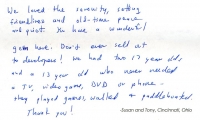 We loved the serenity, setting
friendliness and old-time phone
and quiet. You have a wonderful
gem here. Don't ever sell out
to developers! We had two 17 year olds
and a 13 year old who never needed
a TV, video game, DVD or phone -
they played games, walked & paddleboated.
Thank you!
-Susan and Tony, Cincinnati, Ohio